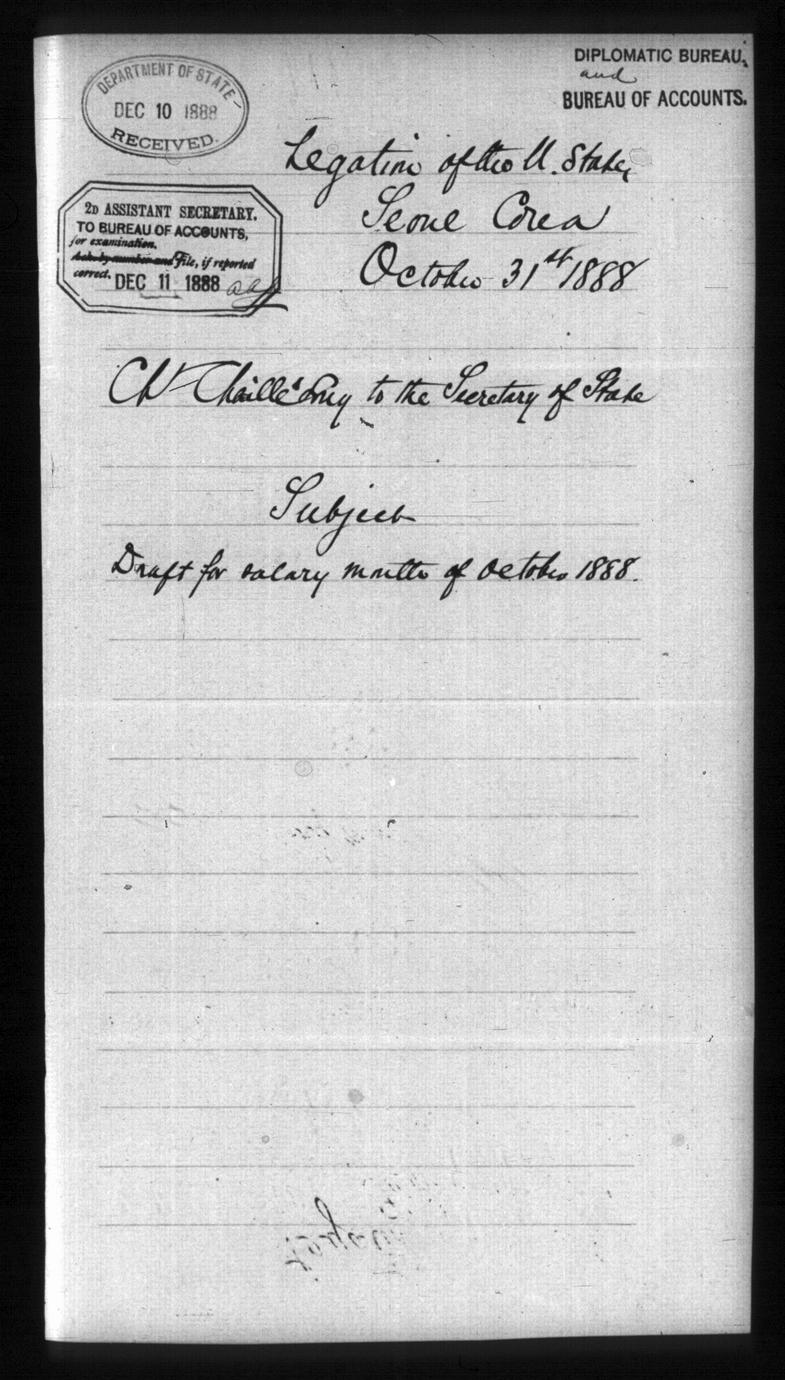 DIPLOMATIC BUREAU,
and
BUREAU OF ACCOUNTS.
DEPARTMENT OF STATE
DEC 10 1888
RECEIVED.
2D ASSISTANT SECRETARY.
TO BUREAU OF ACCOUNTS,
for examination.
File, if reported
correct.
DEC 11 1888
Legation of the U. States
Seoul Corea
October 31st 1888
Ch. Chaillé Long to the Secretary of State
Subject
Draft for salary month of October 1888.